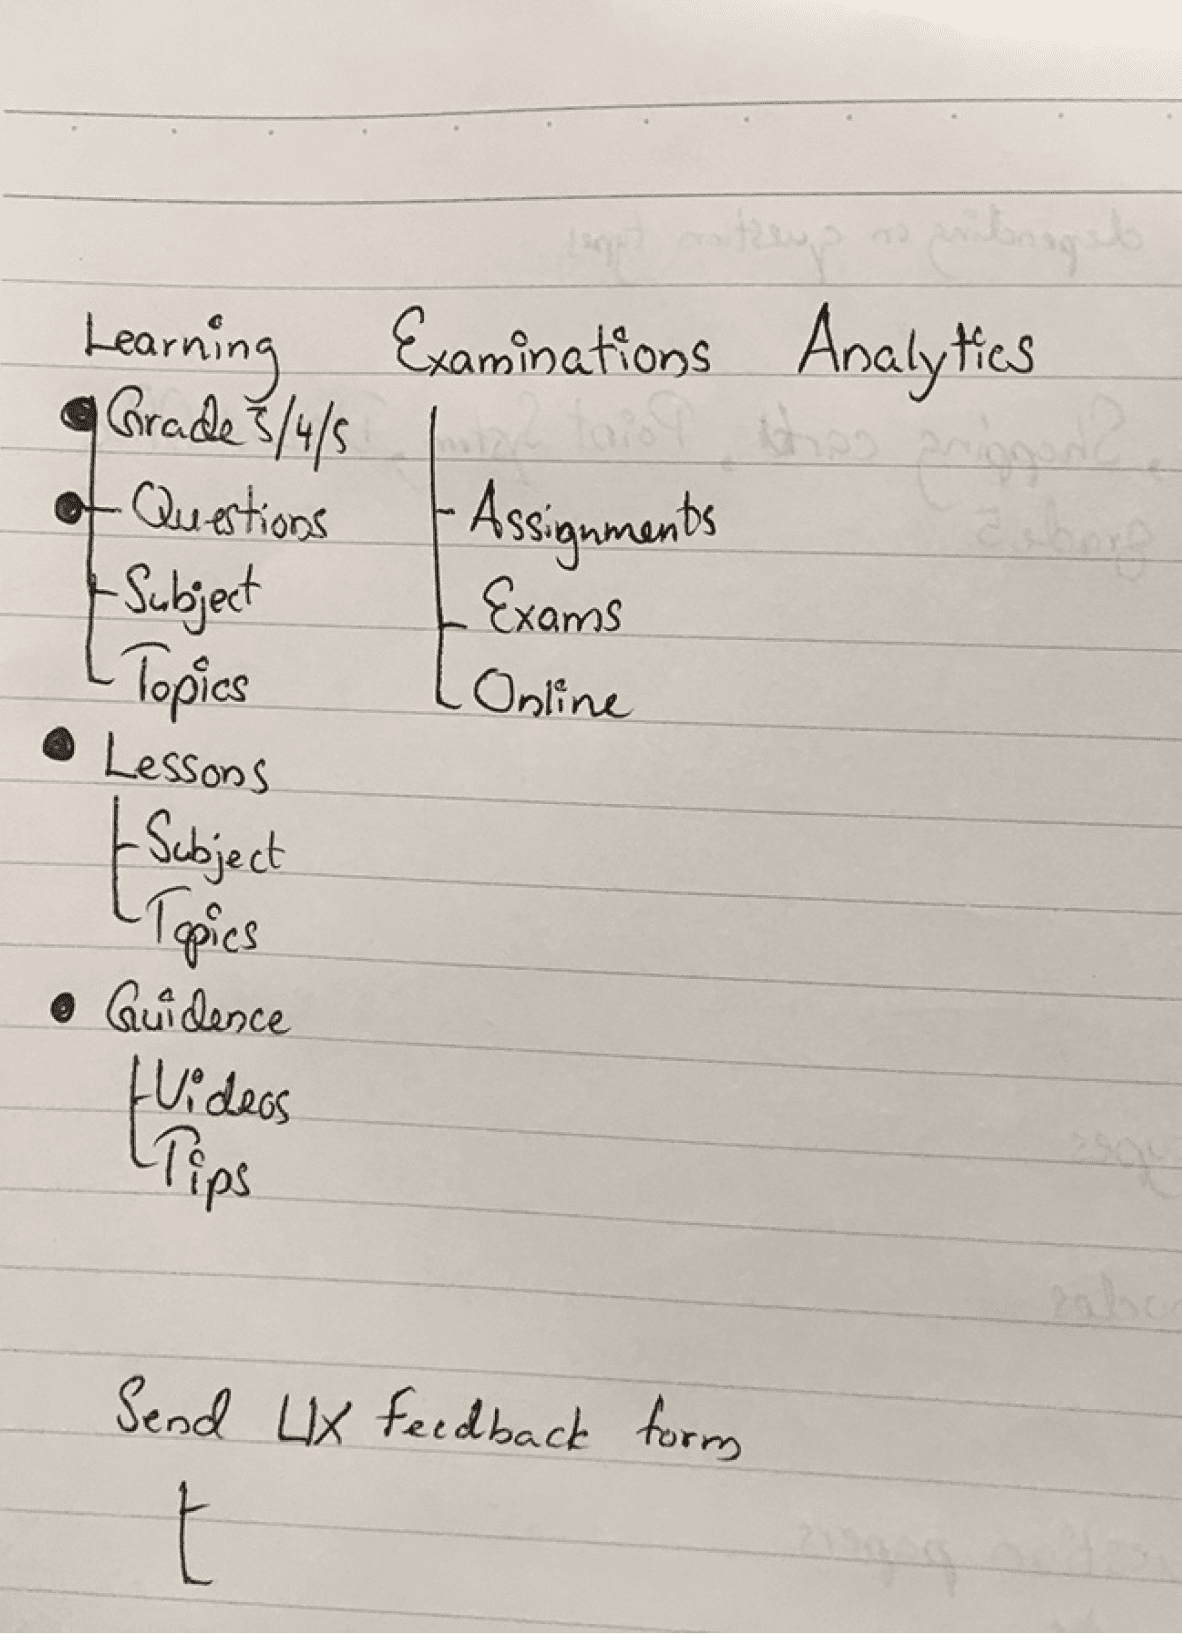 Learning Examinations Analytics
Grade 3/4/5
Questions Assignments
Subject Exams
Topics Online
Lessons
Subject
Topics
Guidence
Videos
Tips
Send UX feedback form